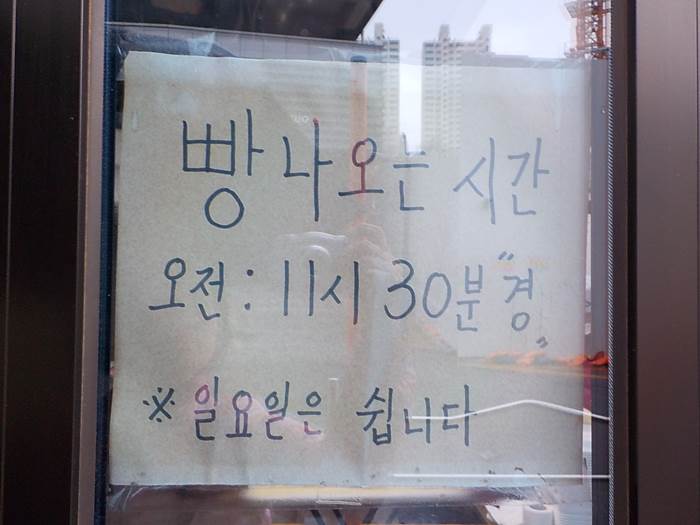 빵 나오는 시간
오전 : 11시 30분 "경"
※ 일요일은 쉽니다